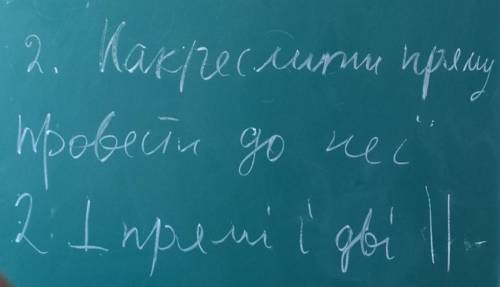 2. Накреслити пряму
провести до неї
2 ⊥ прямі і дві ||-